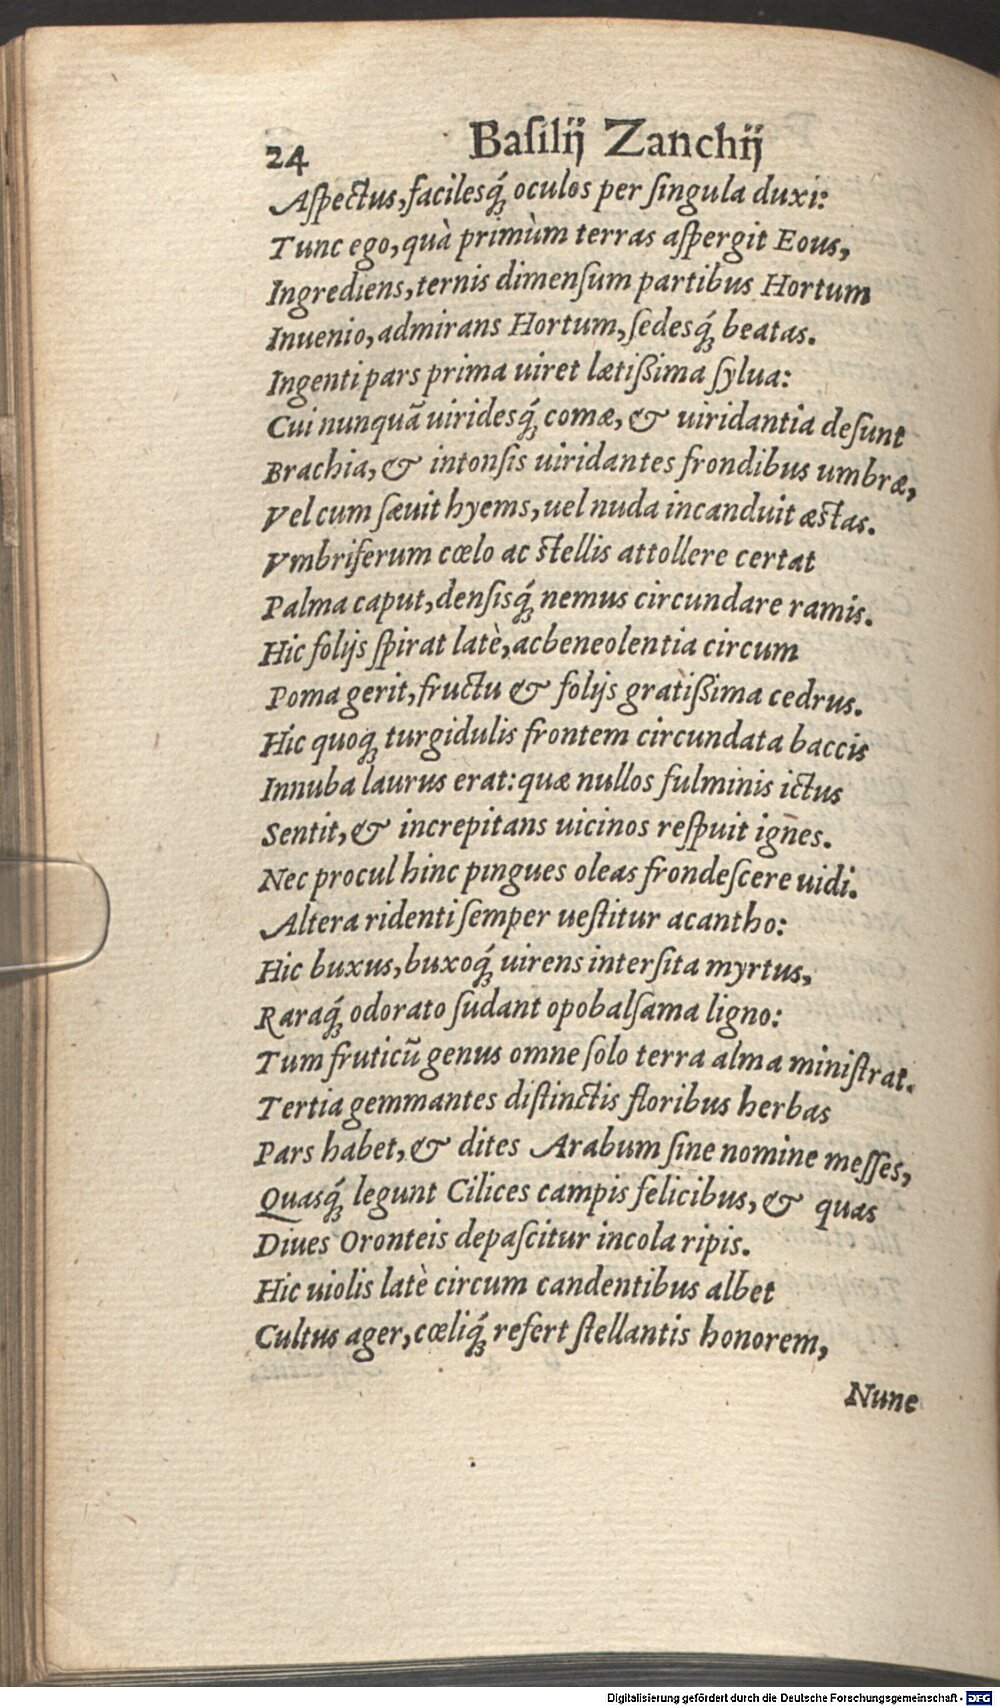 24 Baſilij Zanchij
Aſpectus, facilesq́; oculos per ſingula duxi:
Tunc ego, quà primùm terras aſpergit Eous,
Ingrediens, ternis dimenſum partibus Hortum
Inuenio, admirans Hortum, ſedesq́; beatas.
Ingenti pars prima uiret lætißima ſylua:
Cui nunquã uiridesq́; comæ, & uiridantia deſunt
Brachia, & intonſis uiridantes frondibus umbræ,
Vel cum ſæuit hyems, uel nuda incanduit æſtas.
Vmbriferum cœlo ac ſtellis attollere certat
Palma caput, denſisq́; nemus circundare ramis.
Hic folijs ſpirat latè, ac beneolentia circum
Poma gerit, fructu & folijs gratißima cedrus.
Hic quoq; turgidulis frontem circundata baccis
Innuba laurus erat: quæ nullos fulminis ictus
Sentit, & increpitans uicinos reſpuit ignes.
Nec procul hinc pingues oleas frondeſcere uidi.
Altera ridenti ſemper ueſtitur acantho:
Hic buxus, buxoq́; uirens interſita myrtus,
Raraq́; odorato ſudant opobalſama ligno:
Tum fruticũ genus omne ſolo terra alma miniſtrat.
Tertia gemmantes diſtinctis floribus herbas
Pars habet, & dites Arabum ſine nomine meſſes,
Quasq́; legunt Cilices campis felicibus, & quas
Diues Oronteis depaſcitur incola ripis.
Hic uiolis latè circum candentibus albet
Cultus ager, cœliq́; refert ſtellantis honorem,
Nunc
Digitalisierung gefördert durch die Deutsche Forschungsgemeinschaft - DFG